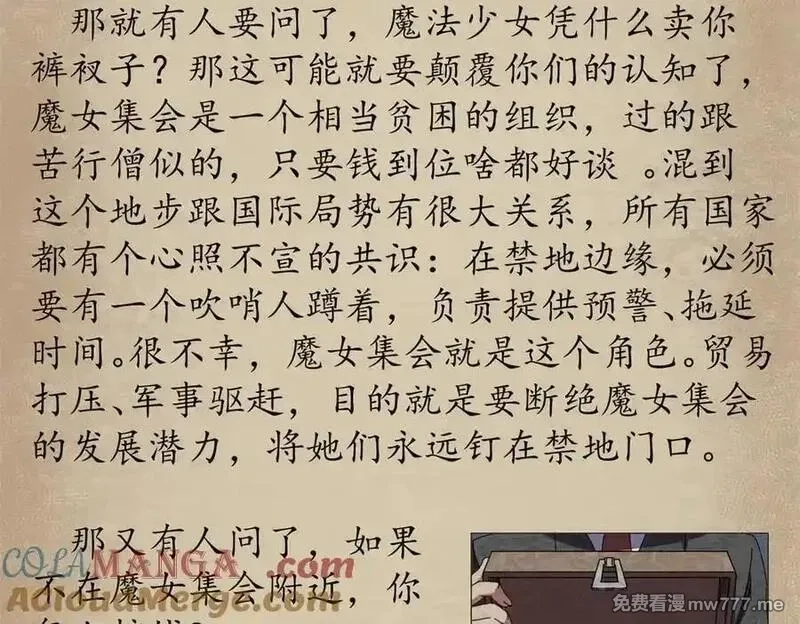 那就有人要问了，魔法少女凭什么卖你
裤衩子？那这可能就要颠覆你们的认知了，
魔女集会是一个相当贫困的组织，过的跟
苦行僧似的，只要钱到位啥都好谈 。混到
这个地步跟国际局势有很大关系，所有国家
都有个心照不宣的共识：在禁地边缘，必须
要有一个吹哨人蹲着，负责提供预警、拖延
时间。很不幸，魔女集会就是这个角色。贸易
打压、军事驱赶，目的就是要断绝魔女集会
的发展潜力，将她们永远钉在禁地门口。
那又有人问了，如果
不在魔女集会附近，你
COLAMANGA.com
AcloudMerge.com
免费看漫mw777.me